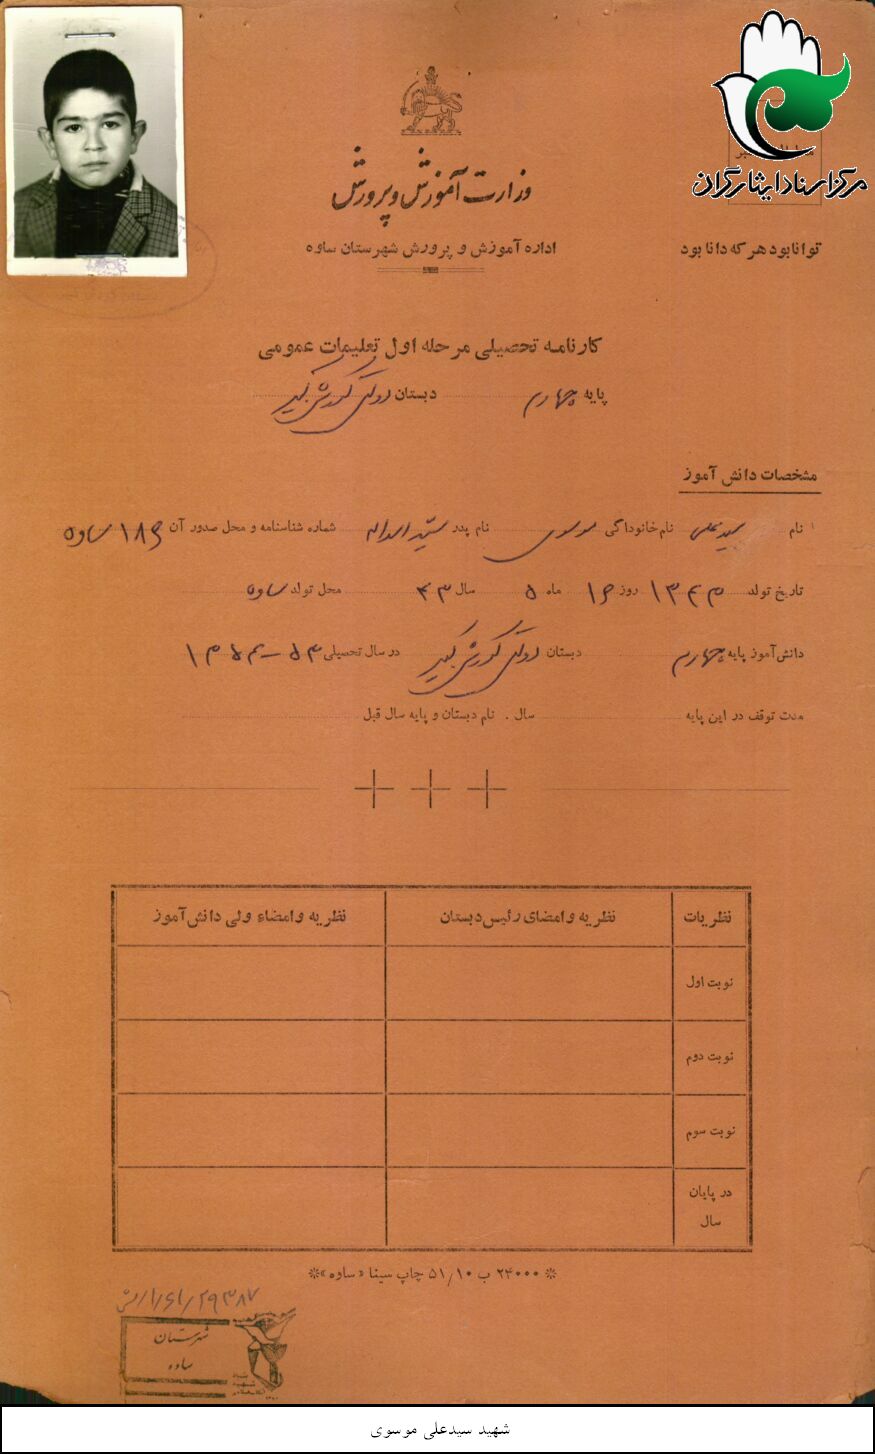 مرکز اسناد ایثارگران
وزارت آموزش و پرورش
اداره آموزش و پرورش شهرستان ساوه
توانا بود هر که دانا بود
کارنامه تحصیلی مرحله اول تعلیمات عمومی
پایه چهارم دبستان دولتی کورش کبیر
مشخصات دانش آموز
نام سیدعلی نام خانوادگی موسوی نام پدر سید اسداله شماره شناسنامه و محل صدور آن ۱۸۶ ساوه
تاریخ تولد ۱۳۴۳ روز ۱۶ ماه ۵ سال ۴۳ محل تولد ساوه
دانش آموز پایه چهارم دبستان دولتی کورش کبیر در سال تحصیلی ۵۳-۱۳۵۴
مدت توقف در این پایه سال . نام دبستان و پایه سال قبل
نظریات نظریه و امضای رئیس دبستان نظریه و امضاء ولی دانش آموز
نوبت اول
نوبت دوم
نوبت سوم
در پایان
سال
۲۴۰۰۰ ب ۵۱/۱۰ چاپ سینا «ساوه»
شهرستان
ساوه
شهید سیدعلی موسوی